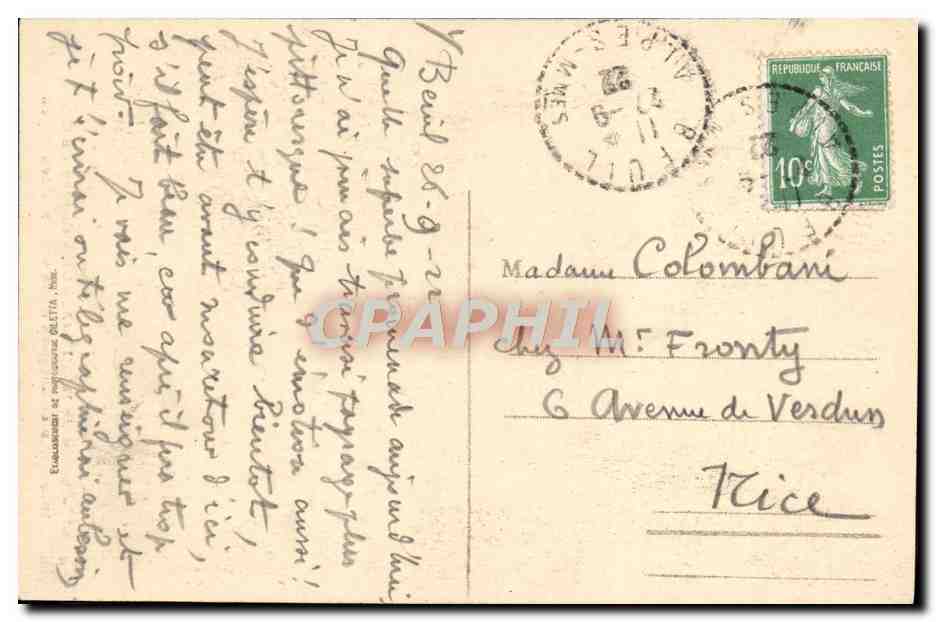 Beuil 26-9-22
Quelle superbe promenade aujourd'hui,
Je n'ai jamais traversé paysage plus
pittoresque ! que d'émotion aussi !
J'espère t'y conduire bientôt,
peut être avant mon retour d'ici,
s'il fait beau, car après il fera trop
froid. Je vais me renseigner et
je t'écrirai ou télégraphierai au besoin
ETABLISSEMENT DE PHOTOGRAPHIE GILETTA, NICE
BEUIL
ALPES-MMES
REPUBLIQUE FRANÇAISE
10c
POSTES
Madame Colombani
chez Mr Fronty
6 Avenue de Verdun
Nice
CPAPHIL